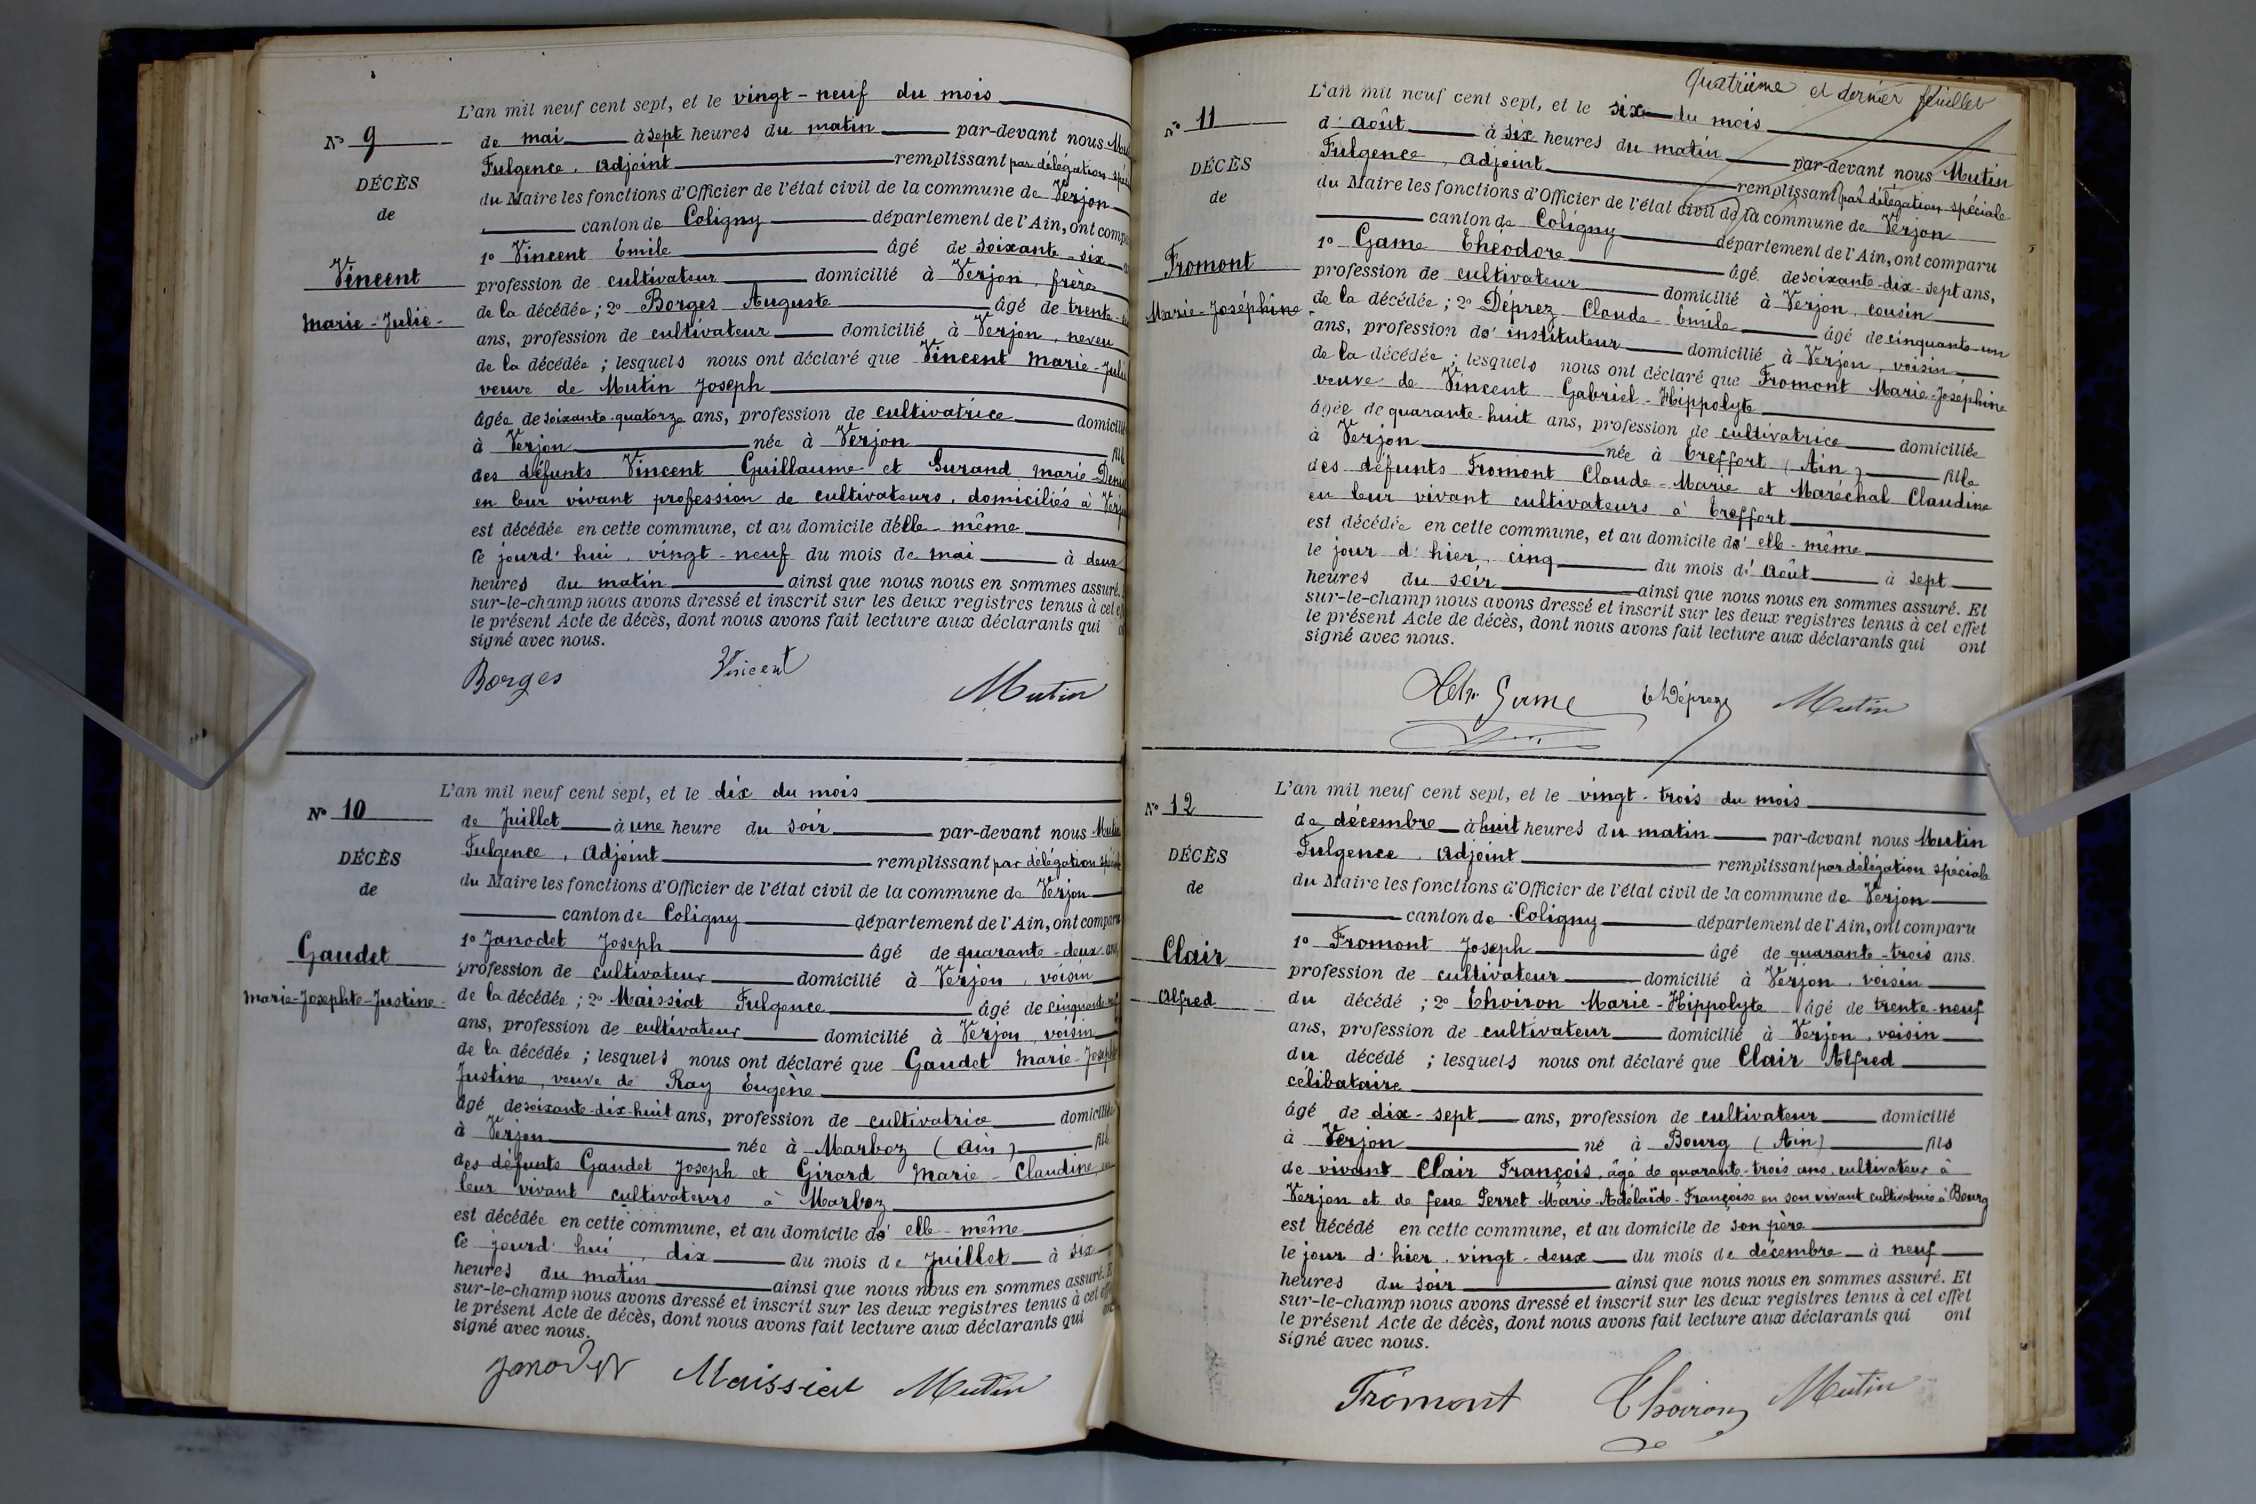 L'an mil neuf cent sept, et le vingt-neuf du mois
N° 9
de mai à sept heures du matin par-devant nous
Fulgence, Adjoint remplissant par délégation
DÉCÈS
du Maire les fonctions d'Officier de l'état civil de la commune de Verjon
de
canton de Coligny département de l'Ain, ont
1° Vincent Emile âgé de soixante-six
Vincent
profession de cultivateur domicilié à Verjon, frère
de la décédée; 2° Borges Auguste âgé de trente-
Marie-Julie
ans, profession de cultivateur domicilié à Verjon, neveu
de la décédée; lesquels nous ont déclaré que Vincent Marie-Julie
veuve de Mutin Joseph
âgée de soixante-quatorze ans, profession de cultivatrice
à Verjon née à Verjon
des défunts Vincent Guillaume et Gurand Marie-
en leur vivant profession de cultivateurs, domiciliés à
est décédée en cette commune, et au domicile d'elle-même
Ce jourd'hui, vingt-neuf du mois de mai à deux
heures du matin ainsi que nous nous en sommes assuré.
sur-le-champ nous avons dressé et inscrit sur les deux registres tenus à cet
le présent Acte de décès, dont nous avons fait lecture aux déclarants qui
signé avec nous.
Borges Vincent Mutin
L'an mil neuf cent sept, et le dix du mois
N° 10
de Juillet à une heure du soir par-devant nous Mutin
Fulgence, Adjoint remplissant par délégation
DÉCÈS
du Maire les fonctions d'Officier de l'état civil de la commune de Verjon
de
canton de Coligny département de l'Ain, ont comparu
1° Janodet Joseph âgé de quarante-deux ans,
Gaudet
profession de cultivateur domicilié à Verjon, voisin
Marie-Josephte-Justine
de la décédée; 2° Maissiat Fulgence âgé de
ans, profession de cultivateur domicilié à Verjon, voisin
de la décédée; lesquels nous ont déclaré que Gaudet Marie-Josephte
Justine, veuve de Ray Eugène
âgé de soixante-dix-huit ans, profession de cultivatrice domiciliée
à Verjon née à Marboz (Ain)
des défunts Gaudet Joseph et Girard Marie-Claudine, en
leur vivant cultivateurs à Marboz
est décédée en cette commune, et au domicile d'elle-même
Ce jourd'hui, dix du mois de Juillet à six
heures du matin ainsi que nous nous en sommes assuré. E
sur-le-champ nous avons dressé et inscrit sur les deux registres tenus à cet
le présent Acte de décès, dont nous avons fait lecture aux déclarants qui
signé avec nous.
Janodet Maissiat Mutin
Quatrième et dernier feuillet
L'an mil neuf cent sept, et le six du mois
N° 11
d'Août à six heures du matin par-devant nous Mutin
Fulgence, Adjoint remplissant par délégation spéciale
DÉCÈS
du Maire les fonctions d'Officier de l'état civil de la commune de Verjon
de
canton de Coligny département de l'Ain, ont comparu
1° Game Théodore âgé de soixante-dix-sept ans,
Fromont
profession de cultivateur domicilié à Verjon, cousin
Marie-Joséphine
de la décédée; 2° Déprez Claude-Emile âgé de cinquante-un
ans, profession d'instituteur domicilié à Verjon, voisin
de la décédée; lesquels nous ont déclaré que Fromont Marie-Joséphine
veuve de Vincent Gabriel-Hippolyte
âgée de quarante-huit ans, profession de cultivatrice domiciliée
à Verjon née à Treffort (Ain) fille
des défunts Fromont Claude-Marie et Maréchal Claudine
en leur vivant cultivateurs à Treffort
est décédée en cette commune, et au domicile d'elle-même
le jour d'hier, cinq du mois d'Août à sept
heures du soir ainsi que nous nous en sommes assuré. Et
sur-le-champ nous avons dressé et inscrit sur les deux registres tenus à cet effet
le présent Acte de décès, dont nous avons fait lecture aux déclarants qui ont
signé avec nous.
Game Déprez Mutin
L'an mil neuf cent sept, et le vingt-trois du mois
N° 12
de décembre à huit heures du matin par-devant nous Mutin
Fulgence, Adjoint remplissant par délégation spéciale
DÉCÈS
du Maire les fonctions d'Officier de l'état civil de la commune de Verjon
de
canton de Coligny département de l'Ain, ont comparu
1° Fromont Joseph âgé de quarante-trois ans.
Clair
profession de cultivateur domicilié à Verjon, voisin
Alfred
du décédé; 2° Thoiron Marie-Hippolyte âgé de trente-neuf
ans, profession de cultivateur domicilié à Verjon, voisin
du décédé; lesquels nous ont déclaré que Clair Alfred
célibataire
âgé de dix-sept ans, profession de cultivateur domicilié
à Verjon né à Bourg (Ain) fils
de vivant Clair François, âgé de quarante-trois ans, cultivateur à
Verjon et de feue Perret Marie-Adélaïde-Françoise en son vivant cultivatrice à Bourg
est décédé en cette commune, et au domicile de son père
le jour d'hier, vingt-deux du mois de décembre à neuf
heures du soir ainsi que nous nous en sommes assuré. Et
sur-le-champ nous avons dressé et inscrit sur les deux registres tenus à cet effet
le présent Acte de décès, dont nous avons fait lecture aux déclarants qui ont
signé avec nous.
Fromont Thoiron Mutin